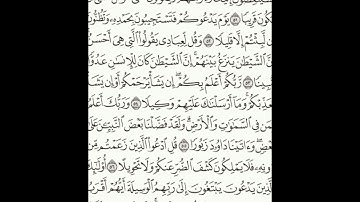 كُونَ قَرِيبًا ٥١ يَوْمَ يَدْعُوكُمْ فَتَسْتَجِيبُونَ بِحَمْدِهِۦ وَتَظُنُّونَ
لَّبِثْتُمْ إِلَّا قَلِيلًا ٥٢ وَقُل لِّعِبَادِى يَقُولُوا۟ ٱلَّتِى هِىَ أَحْسَنُ
ٱلشَّيْطَٰنَ يَنزَغُ بَيْنَهُمْ ۚ إِنَّ ٱلشَّيْطَٰنَ كَانَ لِلْإِنسَٰنِ عَدُوًّا
بِينًا ٥٣ رَّبُّكُمْ أَعْلَمُ بِكُمْ ۖ إِن يَشَأْ يَرْحَمْكُمْ أَوْ إِن يَشَأْ
عَذِّبْكُمْ ۚ وَمَآ أَرْسَلْنَٰكَ عَلَيْهِمْ وَكِيلًا ٥٤ وَرَبُّكَ أَعْلَمُ
مَن فِى ٱلسَّمَٰوَٰتِ وَٱلْأَرْضِ ۗ وَلَقَدْ فَضَّلْنَا بَعْضَ ٱلنَّبِيِّۦنَ عَلَىٰ
عْضٍ ۖ وَءَاتَيْنَا دَاوُۥدَ زَبُورًا ٥٥ قُلِ ٱدْعُوا۟ ٱلَّذِينَ زَعَمْتُم مِّن
ونِهِۦ فَلَا يَمْلِكُونَ كَشْفَ ٱلضُّرِّ عَنكُمْ وَلَا تَحْوِيلًا ٥٦ أُو۟لَٰٓئِكَ
لَّذِينَ يَدْعُونَ يَبْتَغُونَ إِلَىٰ رَبِّهِمُ ٱلْوَسِيلَةَ أَيُّهُمْ أَقْرَبُ